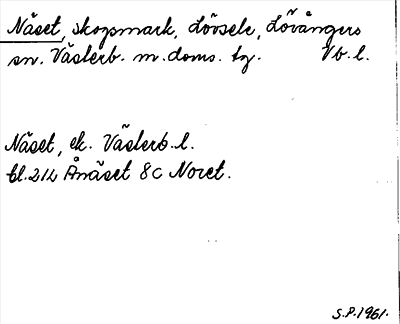 Näset, skogsmark, Lövsele, Lövångers
sn. Västerb. m. doms. tg. Vb. l.
Näset, ek. Västerb. l.
bl. 212 Ånäset 8 C Noret.
S.P. 1961.